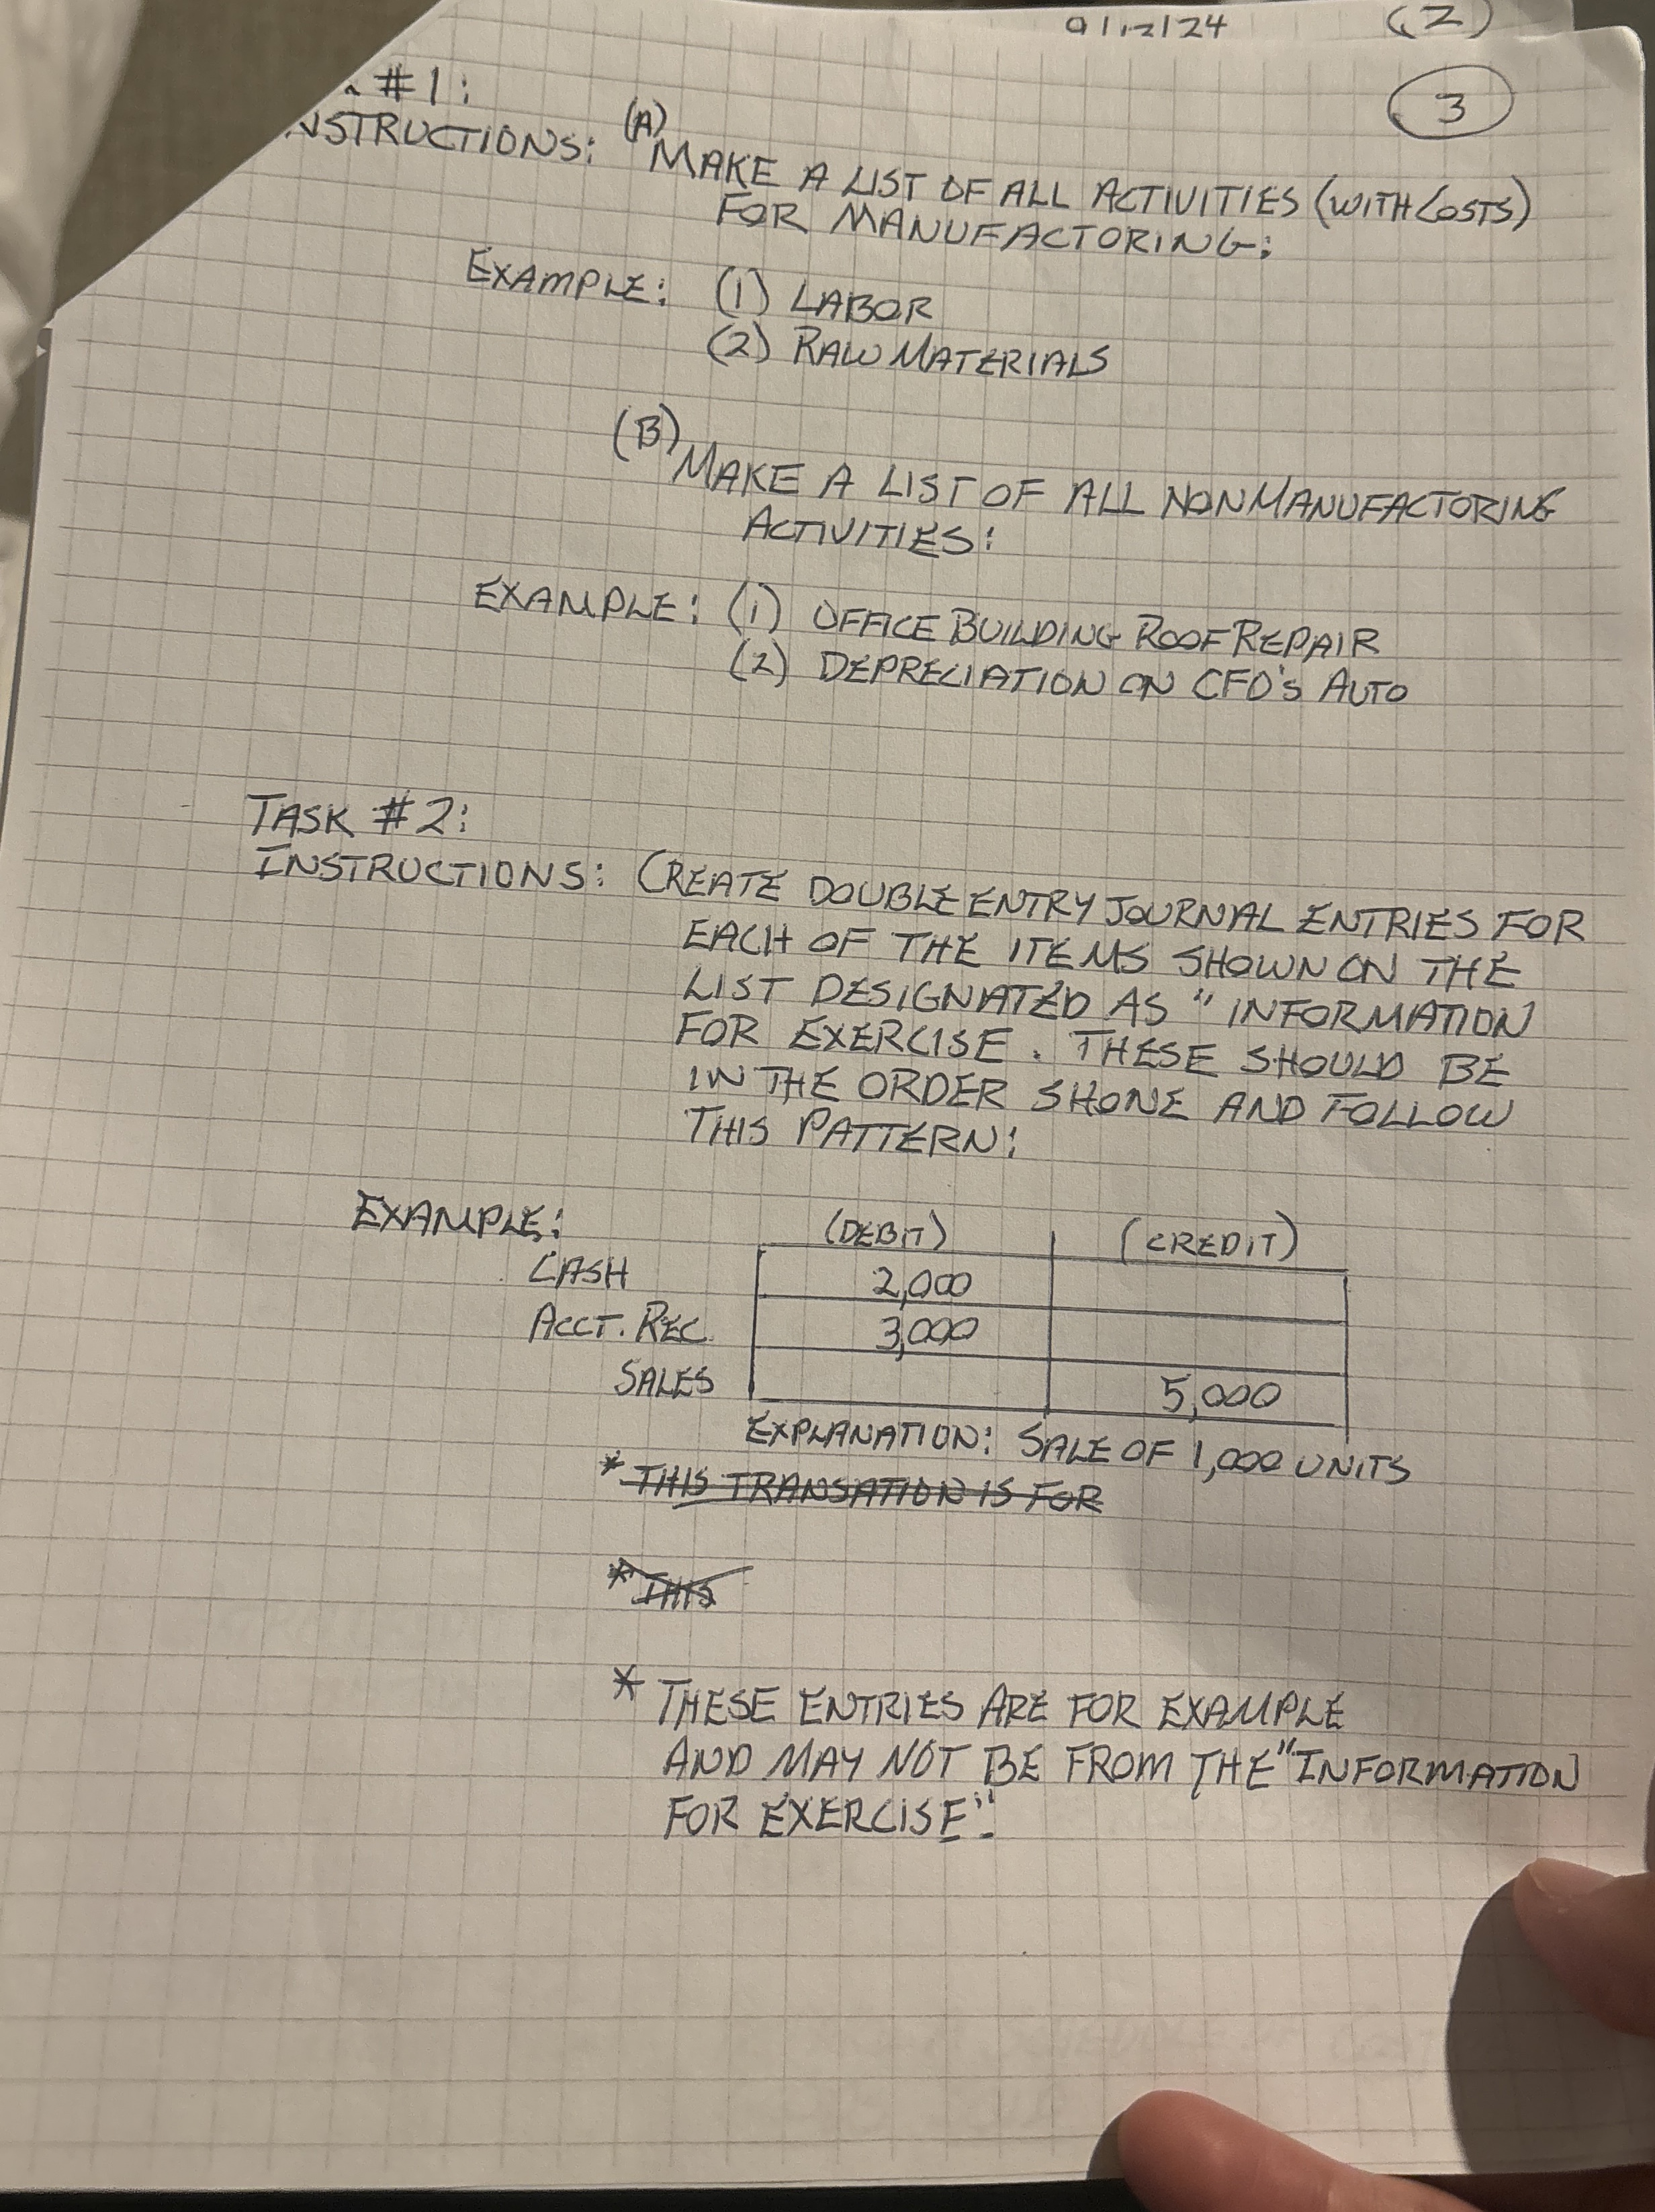 9/12/24 (2)
3
#1:
NSTRUCTIONS: (A) MAKE A LIST OF ALL ACTIVITIES (WITH COSTS)
FOR MANUFACTORING:
EXAMPLE: (1) LABOR
(2) RAW MATERIALS
(B) MAKE A LIST OF ALL NONMANUFACTORING
ACTIVITIES:
EXAMPLE: (1) OFFICE BUILDING ROOF REPAIR
(2) DEPRECIATION ON CFO'S AUTO
TASK #2:
INSTRUCTIONS: CREATE DOUBLE ENTRY JOURNAL ENTRIES FOR
EACH OF THE ITEMS SHOWN ON THE
LIST DESIGNATED AS "INFORMATION
FOR EXERCISE. THESE SHOULD BE
IN THE ORDER SHONE AND FOLLOW
THIS PATTERN:
EXAMPLE: (DEBIT) (CREDIT)
CASH 2,000
ACCT. REC. 3,000
SALES 5,000
EXPLANATION: SALE OF 1,000 UNITS
* THIS TRANSATION IS FOR
* THIS
* THESE ENTRIES ARE FOR EXAMPLE
AND MAY NOT BE FROM THE "INFORMATION
FOR EXERCISE".